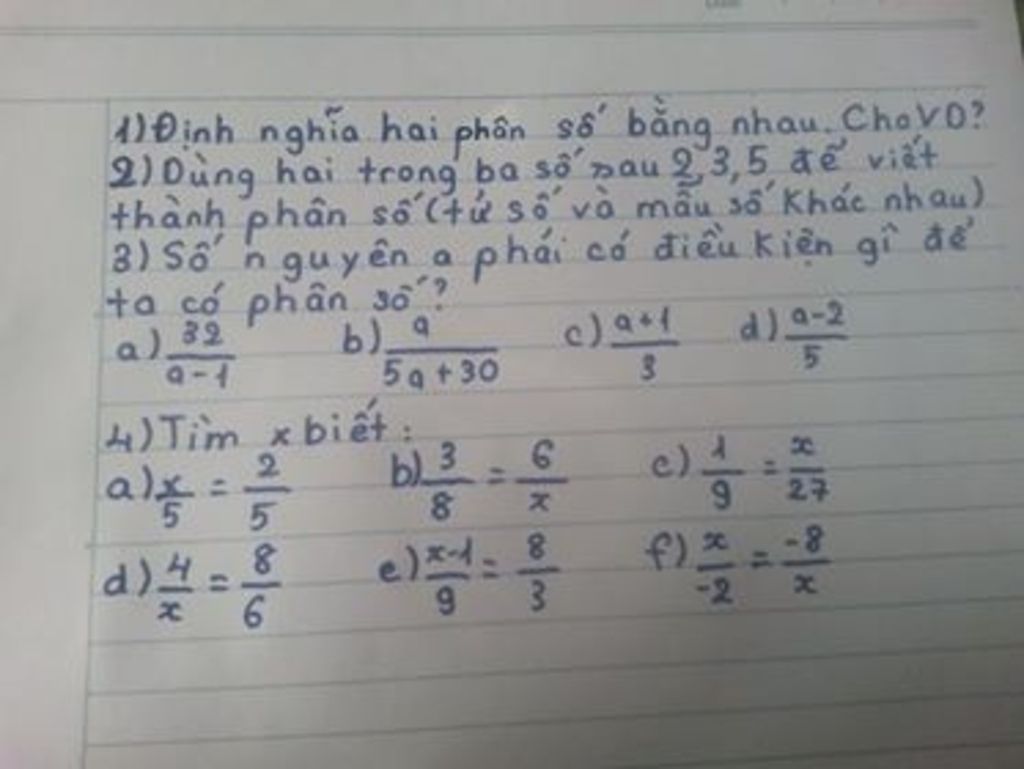 1) Định nghĩa hai phân số bằng nhau. Cho VD?
2) Dùng hai trong ba số sau 2, 3, 5 để viết
thành phân số (tử số và mẫu số khác nhau)
3) Số nguyên a phải có điều kiện gì để
ta có phân số?
a) 32/(a-1) b) a/(5a+30) c) (a+1)/3 d) (a-2)/5
4) Tìm x biết:
a) x/5 = 2/5 b) 3/8 = 6/x c) 1/9 = x/27
d) 4/x = 8/6 e) (x-1)/9 = 8/3 f) x/-2 = -8/x